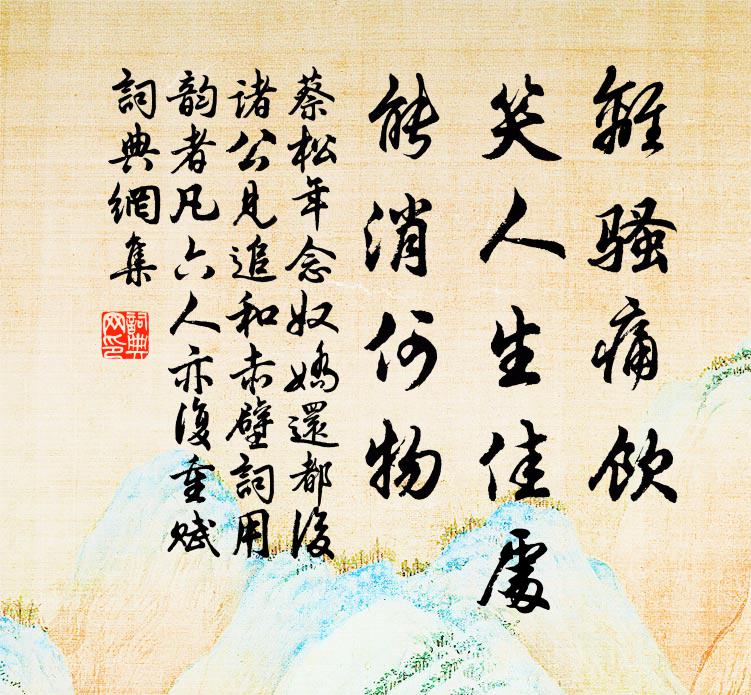 離騷痛飲
笑人生佳處
能消何物
蔡松年念奴嬌還都後
诸公見追和赤壁詞用
韵者凡六人亦復重赋
詞典網集
詞典
网印